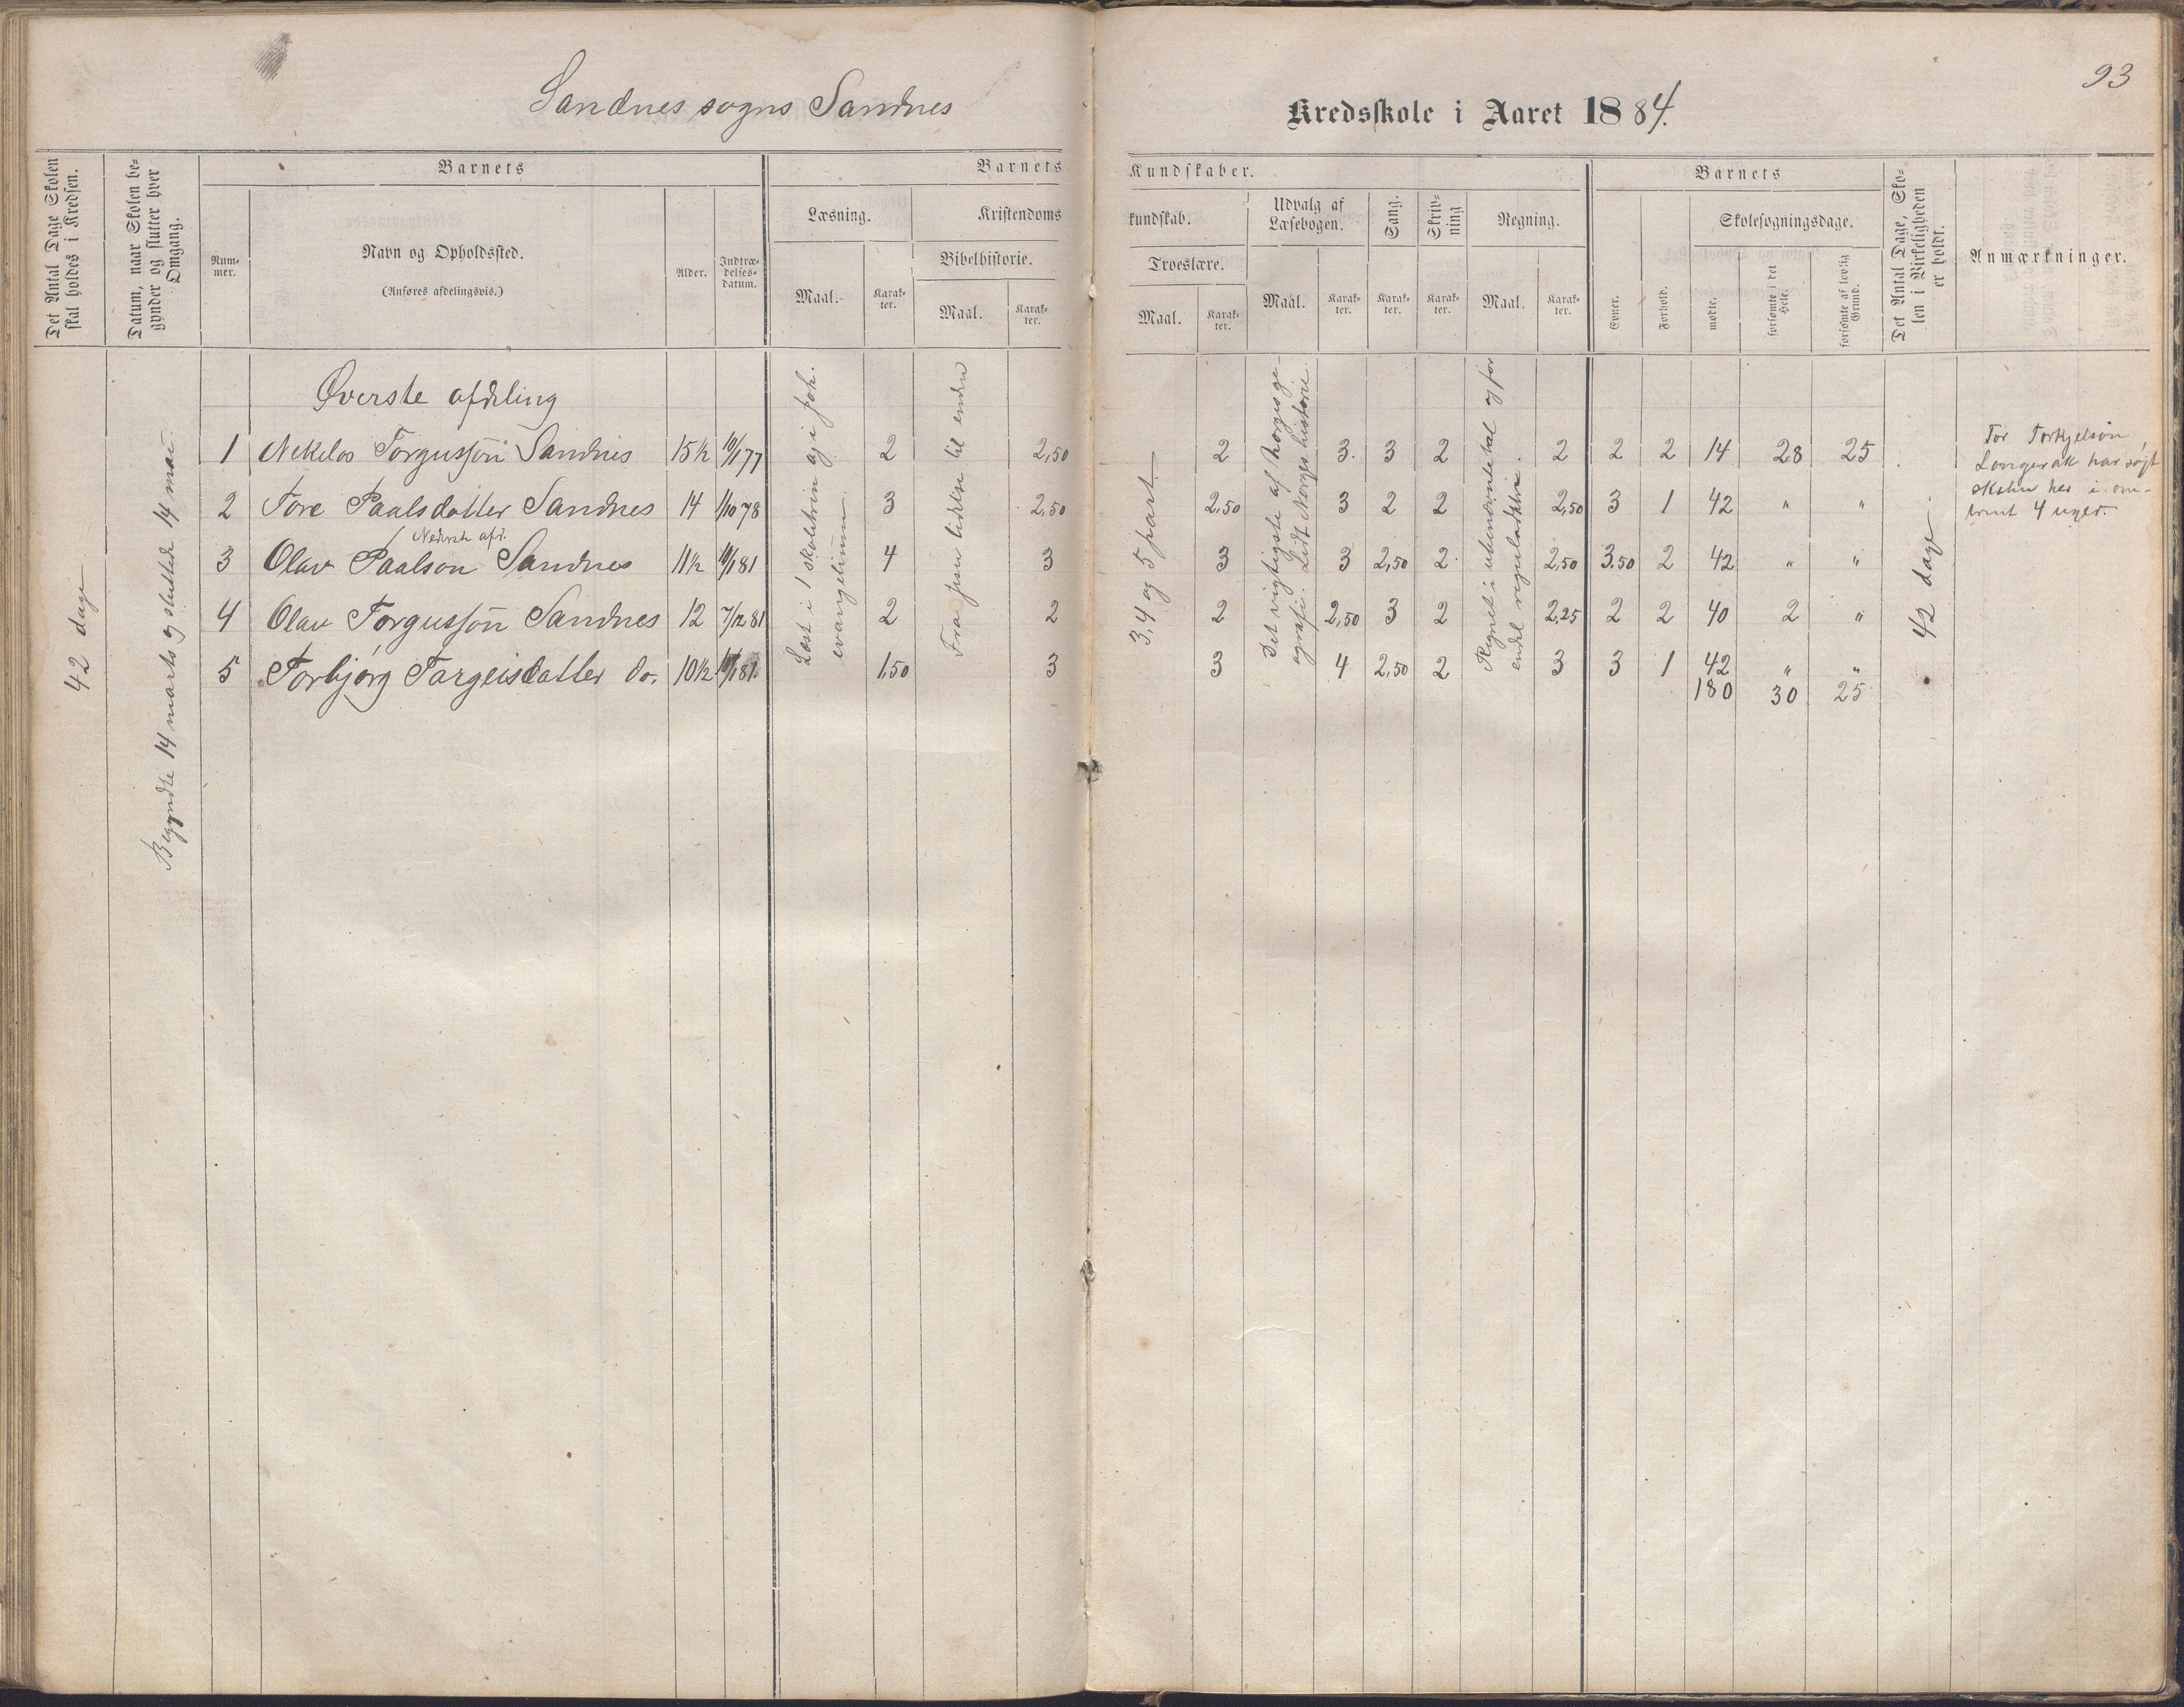 93
Sandnes sogns Sandnes Kredsskole i Aaret 1884.
Det Antal Dage Skolen skal holdes i Kredsen.
Datum, naar Skolen begynder og slutter hver Omgang.
Barnets
Nummer.
Navn og Opholdssted.
(Anføres afdelingsvis.)
Alder.
Indtrædelsesdatum.
Barnets Kundskaber.
Læsning.
Maal.
Karakter.
Kristendomskundskab.
Bibelhistorie.
Maal.
Karakter.
Troeslære.
Maal.
Karakter.
Udvalg af Læsebogen.
Maal.
Karakter.
Sang.
Karakter.
Skrivning
Karakter.
Regning.
Maal.
Karakter.
Barnets
Evner.
Forhold.
Skolesøgningsdage.
mødte.
forsømte i det Hele.
forsømte af lovlig Grund.
Det Antal Dage, Skolen i Virkeligheden er holdt.
Anmærkninger.
42 dage
Begyndte 14 marts og sluttede 14 mai.
Læst i 1 skoletrin og i Joh. evangelium.
Fra Jesu lidelse til enden
3, 4 og 5 part
Det vigtigste af Norges geografi. Lidt Norgs historie.
Regnet i ubenævnte tal og for endel reguladetri.
42 dage.
Øverste afdeling
1 Nekelos Torgussøn Sandnes 15½ 10/1 77 2 2,50 2 3. 3 2 2 2 2 14 28 25
2 Tore Paalsdatter Sandnes 14 1/10 78 3 2,50 2,50 3 2 2 2,50 3 1 42 " "
Nederste afd.
3 Olav Paalson Sandnes 11½ 10/1 81 4 3 3 3 2,50 2 2,50 3.50 2 42 " "
4 Olav Torgussøn Sandnes 12 7/12 81 2 2 2 2,50 3 2 2.25 2 2 40 2 "
5 Torbjørg Targeisdatter do. 10½ 10/1 81 1,50 3 3 4 2,50 2 3 3 1 42 " "
180 30 25
Tor Torkjelsøn
Longerak har søgt
skolen her i om-
trent 4 uger.